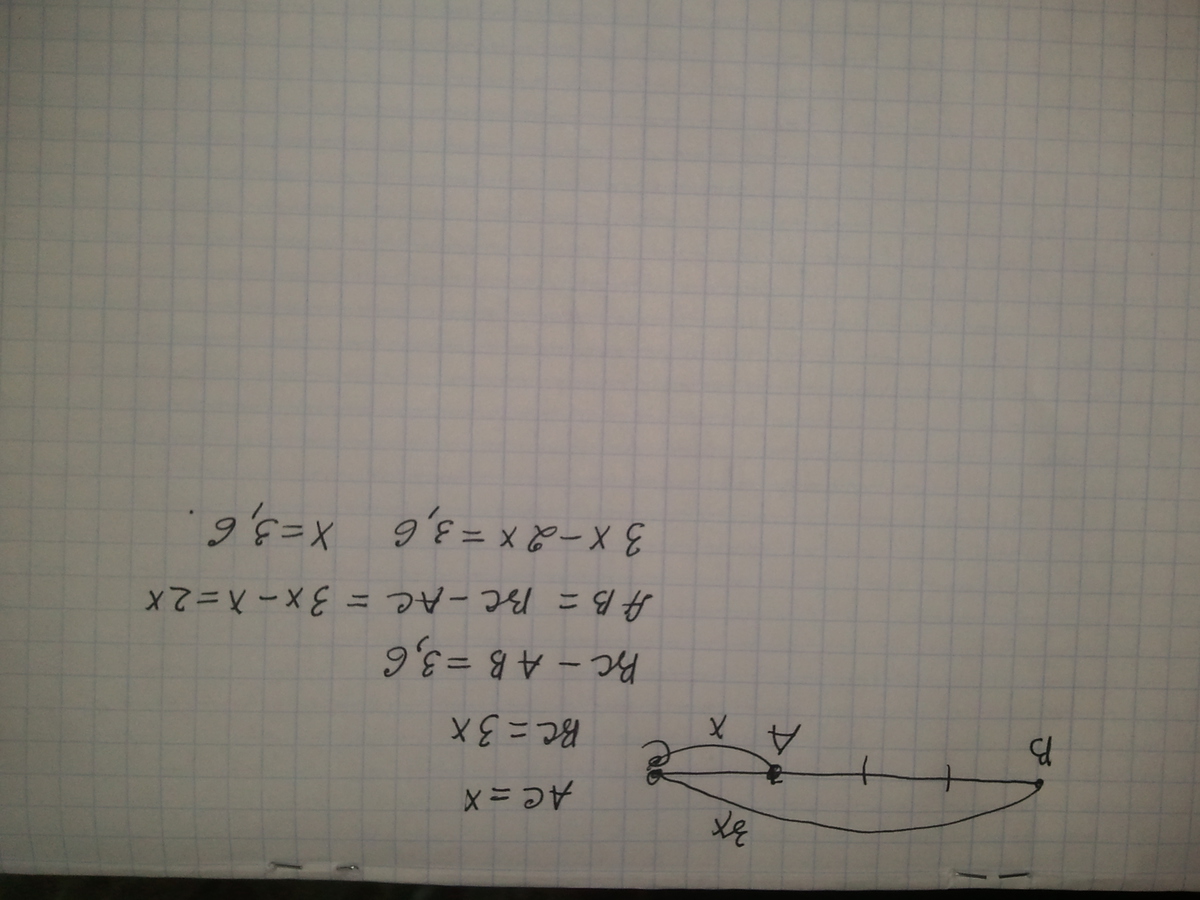 3x
B A x C
AC = x
BC = 3x
BC - AB = 3,6
AB = BC - AC = 3x - x = 2x
3x - 2x = 3,6 x = 3,6.